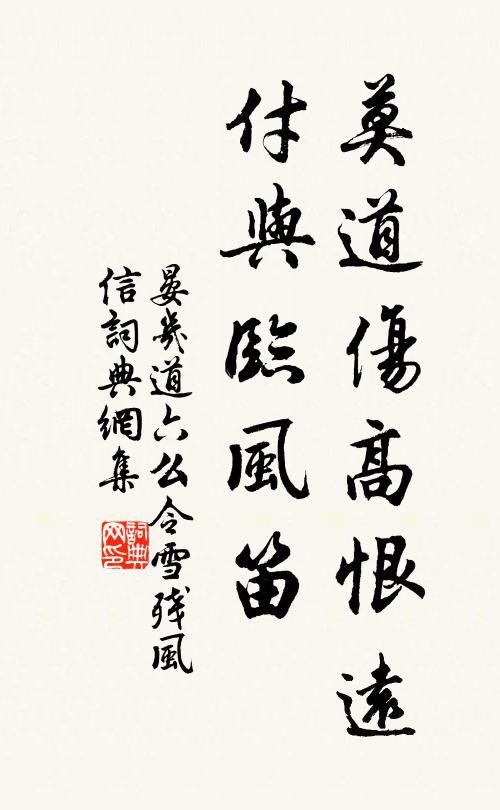 莫道傷高恨遠
付與臨風笛
晏幾道六么令雪殘風
信詞典網集
詞典網印